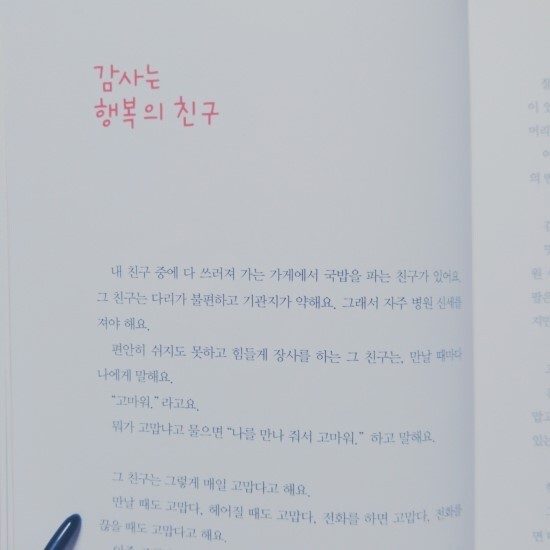 감사는
행복의 친구
내 친구 중에 다 쓰러져 가는 가게에서 국밥을 파는 친구가 있어요.
그 친구는 다리가 불편하고 기관지가 약해요. 그래서 자주 병원 신세를
져야 해요.
편안히 쉬지도 못하고 힘들게 장사를 하는 그 친구는, 만날 때마다
나에게 말해요.
“고마워.” 라고요.
뭐가 고맙냐고 물으면 “나를 만나 줘서 고마워.” 하고 말해요.
그 친구는 그렇게 매일 고맙다고 해요.
만날 때도 고맙다, 헤어질 때도 고맙다, 전화를 하면 고맙다, 전화를
끊을 때도 고맙다고 해요.
이 있
머리
의 번
원 신
팔은
지만
맙고
있는
연 무